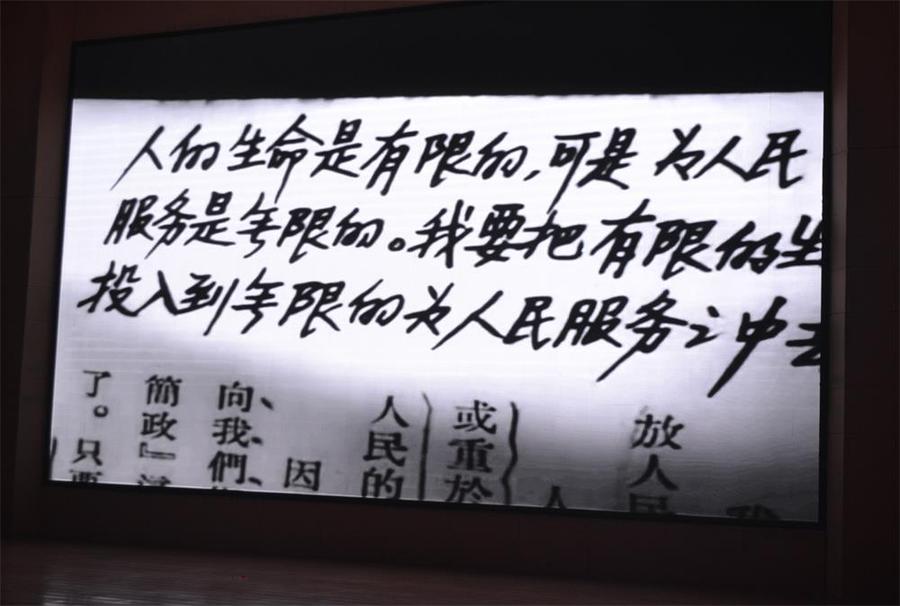 人的生命是有限的,可是为人民
服务是无限的。我要把有限的生
投入到无限的为人民服务之中去
放人民
人
或重於
人民的
因
向我們
簡政』
了。只要